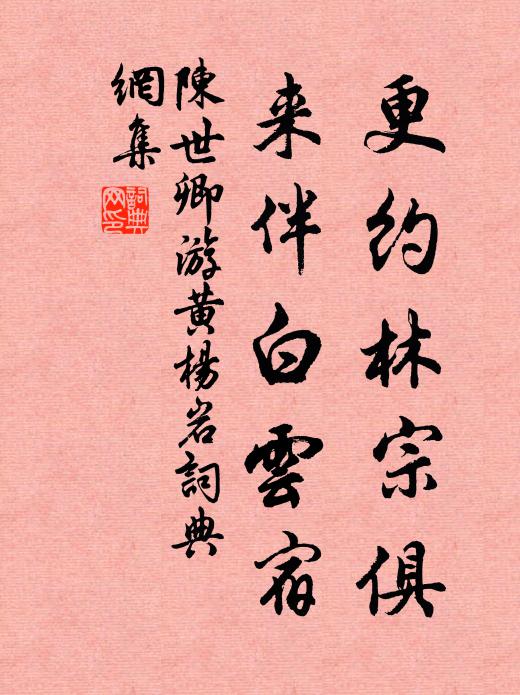 更约林宗俱
来伴白雲宿
陳世卿游黄楊岩詞典
網集
詞典网印